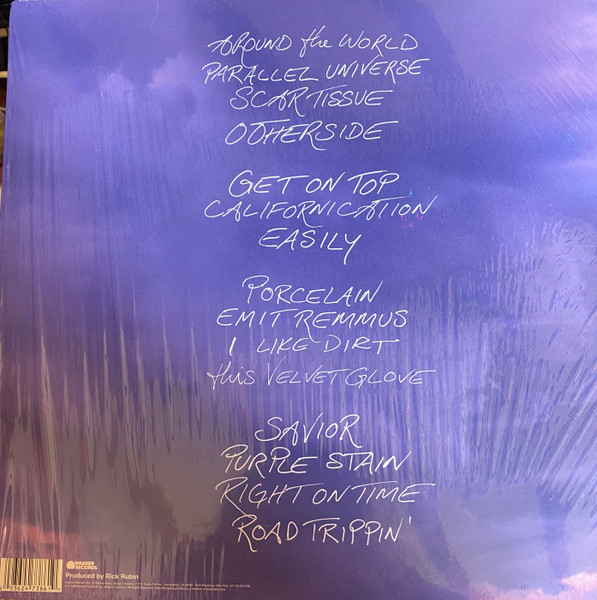 AROUND the WORLD
PARALLEL UNIVERSE
SCAR TISSUE
OTHERSIDE
GET ON TOP
CALIFORNICATION
EASILY
PORCELAIN
EMIT REMMUS
I LIKE DIRT
this VELVET GLOVE
SAVIOR
PURPLE STAIN
RIGHT ON TIME
ROAD TRIPPIN'
WARNER RECORDS
Produced by Rick Rubin